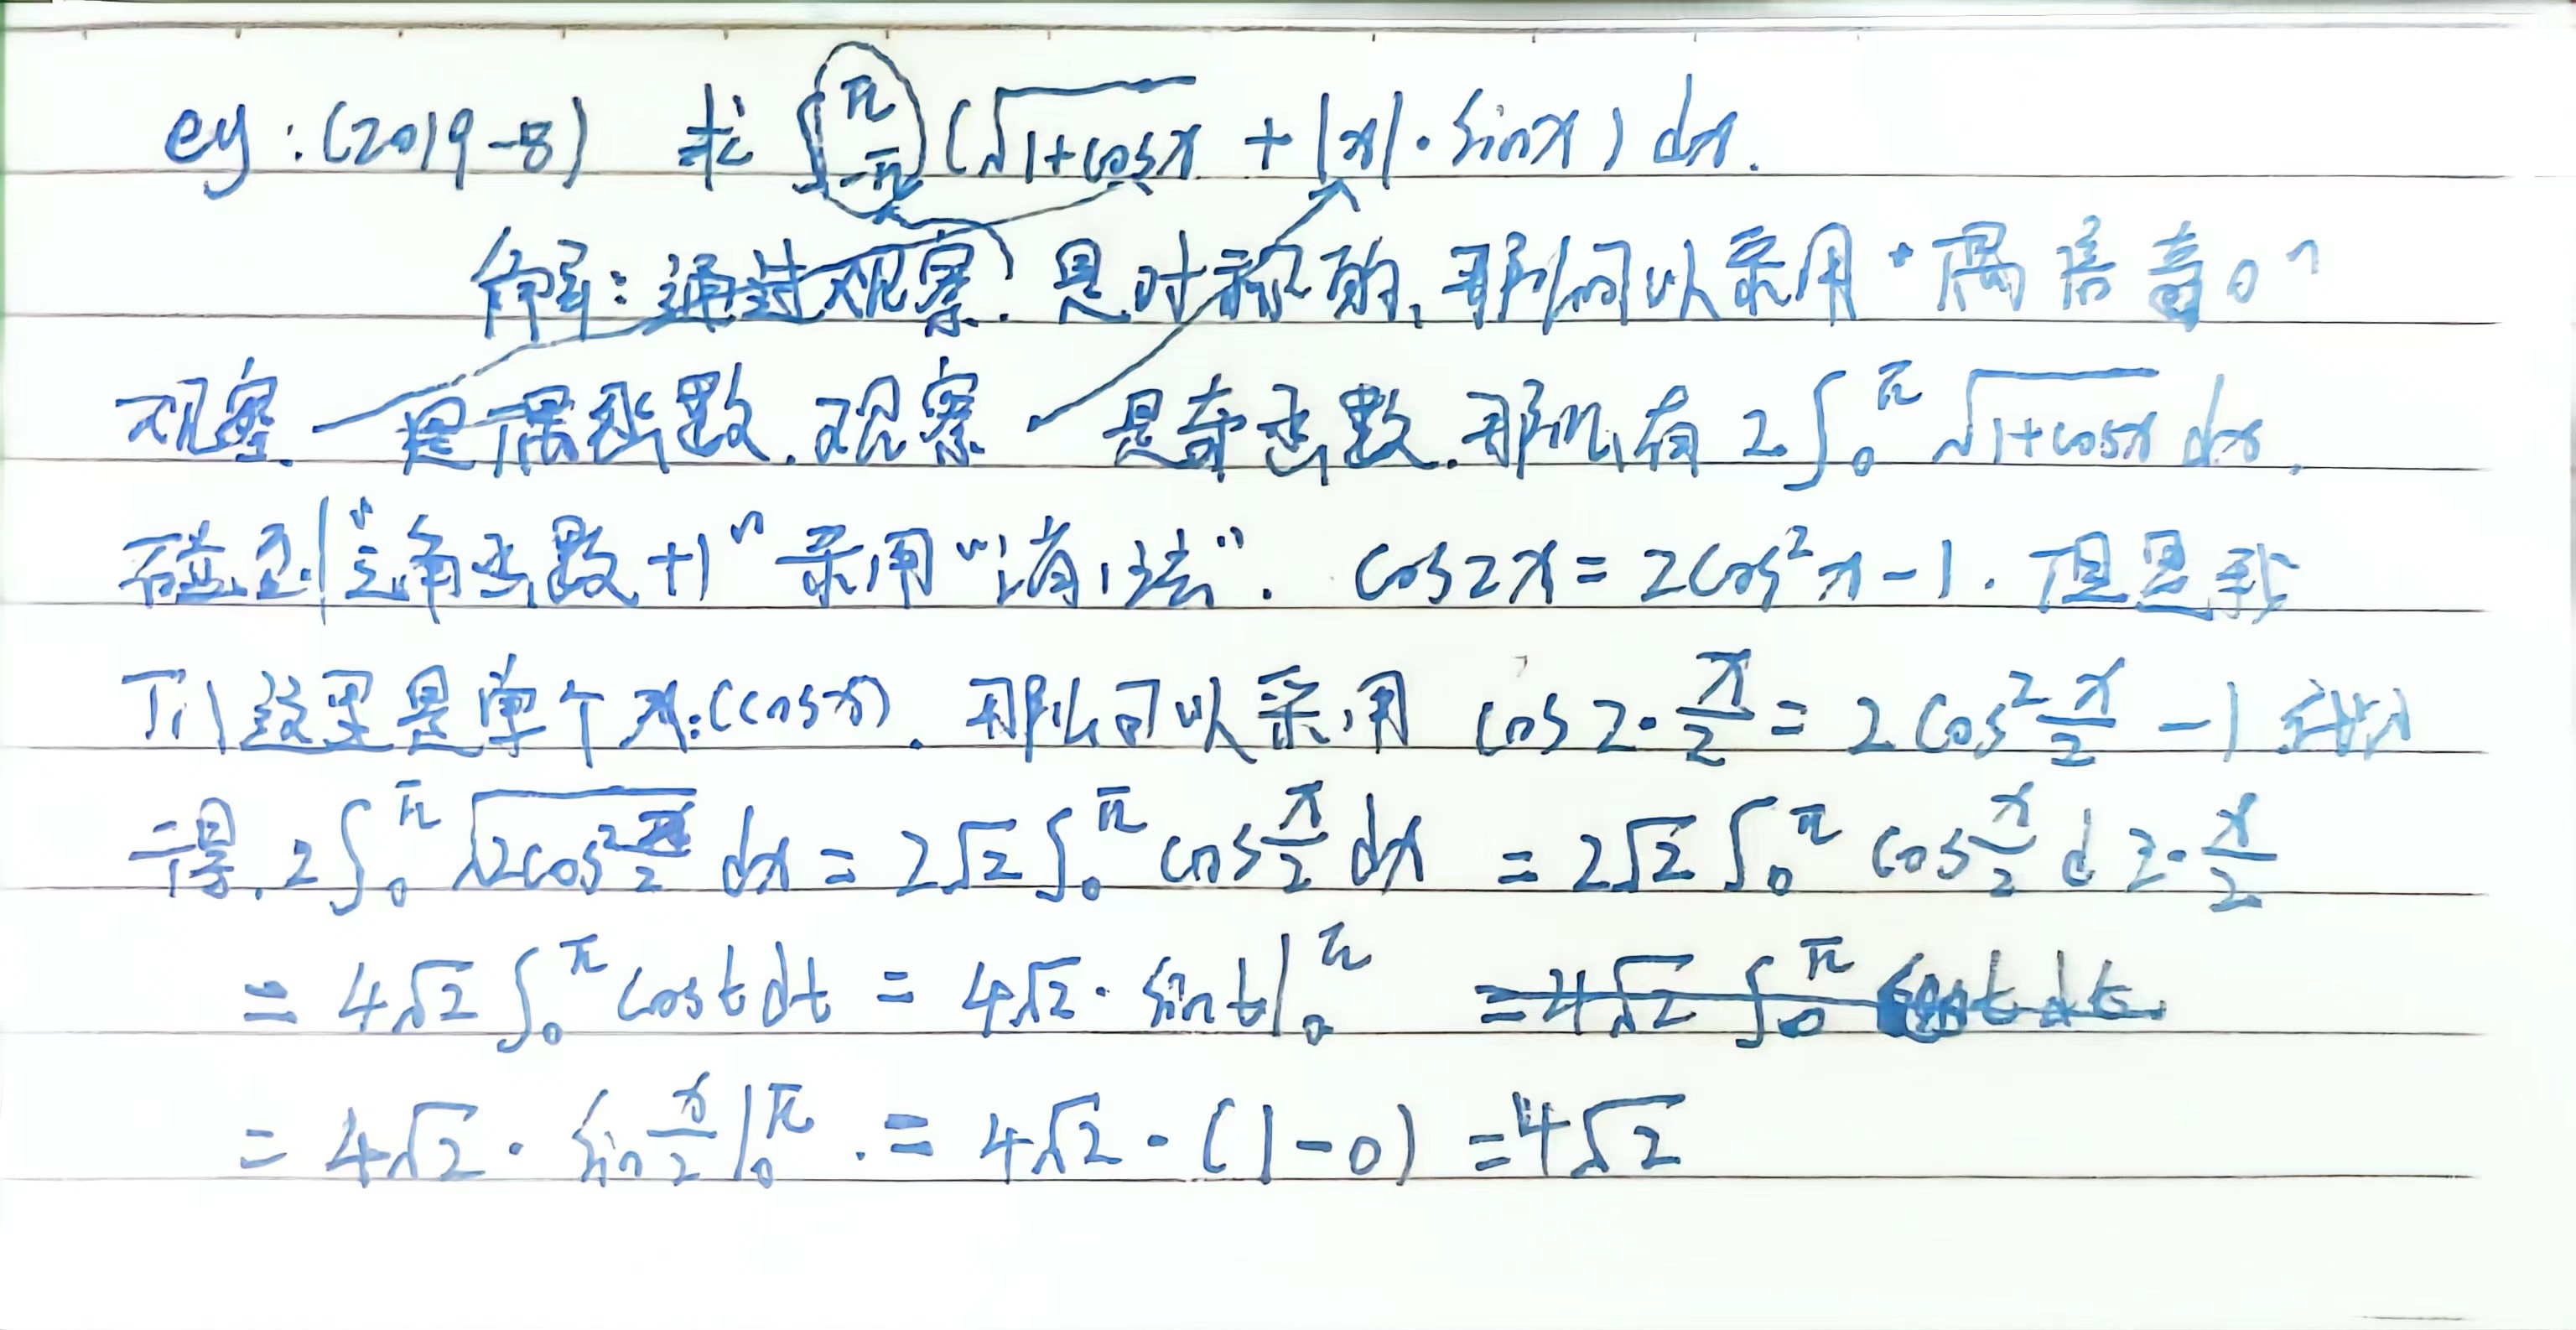 eg:(2019-8) 求 ∫_{-π}^{π} (√(1+cosx) + |x|·sinx) dx.
解:通过观察. 是对称的, 那么可以采用“偶倍奇0”
观察 是偶函数. 观察 是奇函数. 那么有 2∫_0^π √(1+cosx) dx.
碰到“三角函数+1”采用“消1法”. cos2x = 2cos²x-1. 但是我
们这里是单个x:(cosx). 那么可以采用 cos2·x/2 = 2cos²x/2 -1
得. 2∫_0^π √(2cos²x/2) dx = 2√2 ∫_0^π cos x/2 dx = 2√2 ∫_0^π cos x/2 d 2·x/2
= 4√2 ∫_0^π cost dt = 4√2 · sint |_0^π
= 4√2 · sin x/2 |_0^π . = 4√2 · (1-0) = 4√2